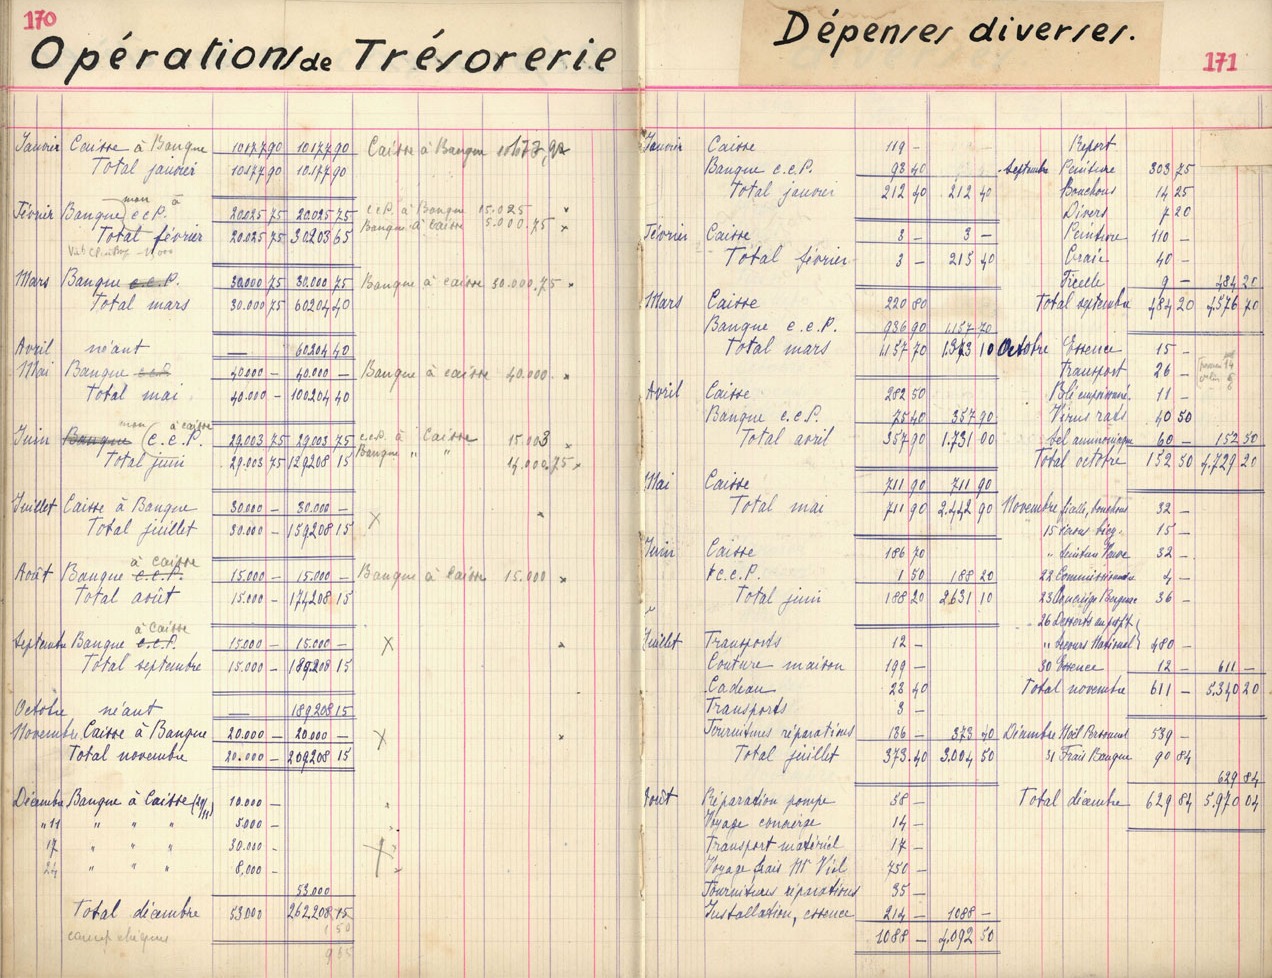 170
Opérations de Trésorerie
Janvier Caisse à Banque 10177 90 10177 90 Caisse à Banque
Total janvier 10177 90 10177 90
mon à
Février Banque c.c.P. 20.025 75 20.025 75 c.c.P. à Banque 15.025
Banque à caisse 5.000.75
Total février 20.025 75 30203 65
Mars Banque c.c.P. 30.000 75 30.000 75 Banque à caisse 30.000.75
Total mars 30.000 75 60204 40
Avril néant — 60204 40
Mai Banque c.c.P. 40.000 — 40.000 — Banque à caisse 40.000.
Total mai 40.000 — 100204 40
mon à caisse
Juin Banque (c.c.P. 29.003 75 29.003 75 c.c.P. à Caisse 15.003
Banque " " 14.000.75
Total juin 29.003 75 129208 15
Juillet Caisse à Banque 30.000 — 30.000 —
Total juillet 30.000 — 159208 15
à caisse
Août Banque c.c.P. 15.000 — 15.000 — Banque à Caisse 15.000
Total août 15.000 — 174208 15
à Caisse
Septembre Banque c.c.P. 15.000 — 15.000 —
Total septembre 15.000 — 189208 15
Octobre néant — 189208 15
Novembre Caisse à Banque 20.000 — 20.000 —
Total novembre 20.000 — 209208 15
Décembre Banque à Caisse 10.000 —
" 11 " " " 5.000 —
17 " " " 30.000 —
24 " " " 8,000 —
53.000
Total décembre 53000 262208 15
Dépenses diverses.
171
Janvier Caisse 119 —
Banque c.c.P. 93 40
Total janvier 212 40 212 40
Février Caisse 3 — 3 —
Total février 3 — 215 40
Mars Caisse 220 80
Banque c.c.P. 936 90 1157 70
Total mars 1.157 70 1.373 10
Avril Caisse 282 50
Banque c.c.P. 75 40 357 90
Total avril 357 90 1.731 00
Mai Caisse 711 90 711 90
Total mai 711 90 2.442 90
Juin Caisse 186 70
c.c.P. 1 50 188 20
Total juin 188 20 2631 10
Juillet Transports 12 —
Couture maison 199 —
Cadeau 23 40
Transports 3 —
Fournitures réparations 136 — 373 40
Total juillet 373 40 3.004 50
Août Réparation pompe 58 —
Voyage concierge 14 —
Transport matériel 17 —
Voyage frais Mr Viel 750 —
Fournitures réparations 35 —
Installation, essence 214 — 1088 —
1088 — 4.092 50
Report
Septembre Peinture 303 75
Bouchons 14 25
Divers 7 20
Peinture 110 —
Craie 40 —
Ficelle 9 — 484 20
Total septembre 484 20 4.576 70
Octobre Essence 15 —
Transport 26 —
Blé empoisonné 11 —
Virus rats 40 50
Sel ammoniaque 60 — 152 50
Total octobre 152 50 4.729 20
Novembre ficelle, bouchons 32 —
15 — 15 —
" 32 —
22 Commissionnaire 4 —
23 Concierge 36 —
26 Desserts
" Secours National 480 —
30 Essence 12 — 611 —
Total novembre 611 — 5.340 20
Décembre Noël Personnel 539 —
31 Frais Banque 90 84
629 84
Total décembre 629 84 5.970 04